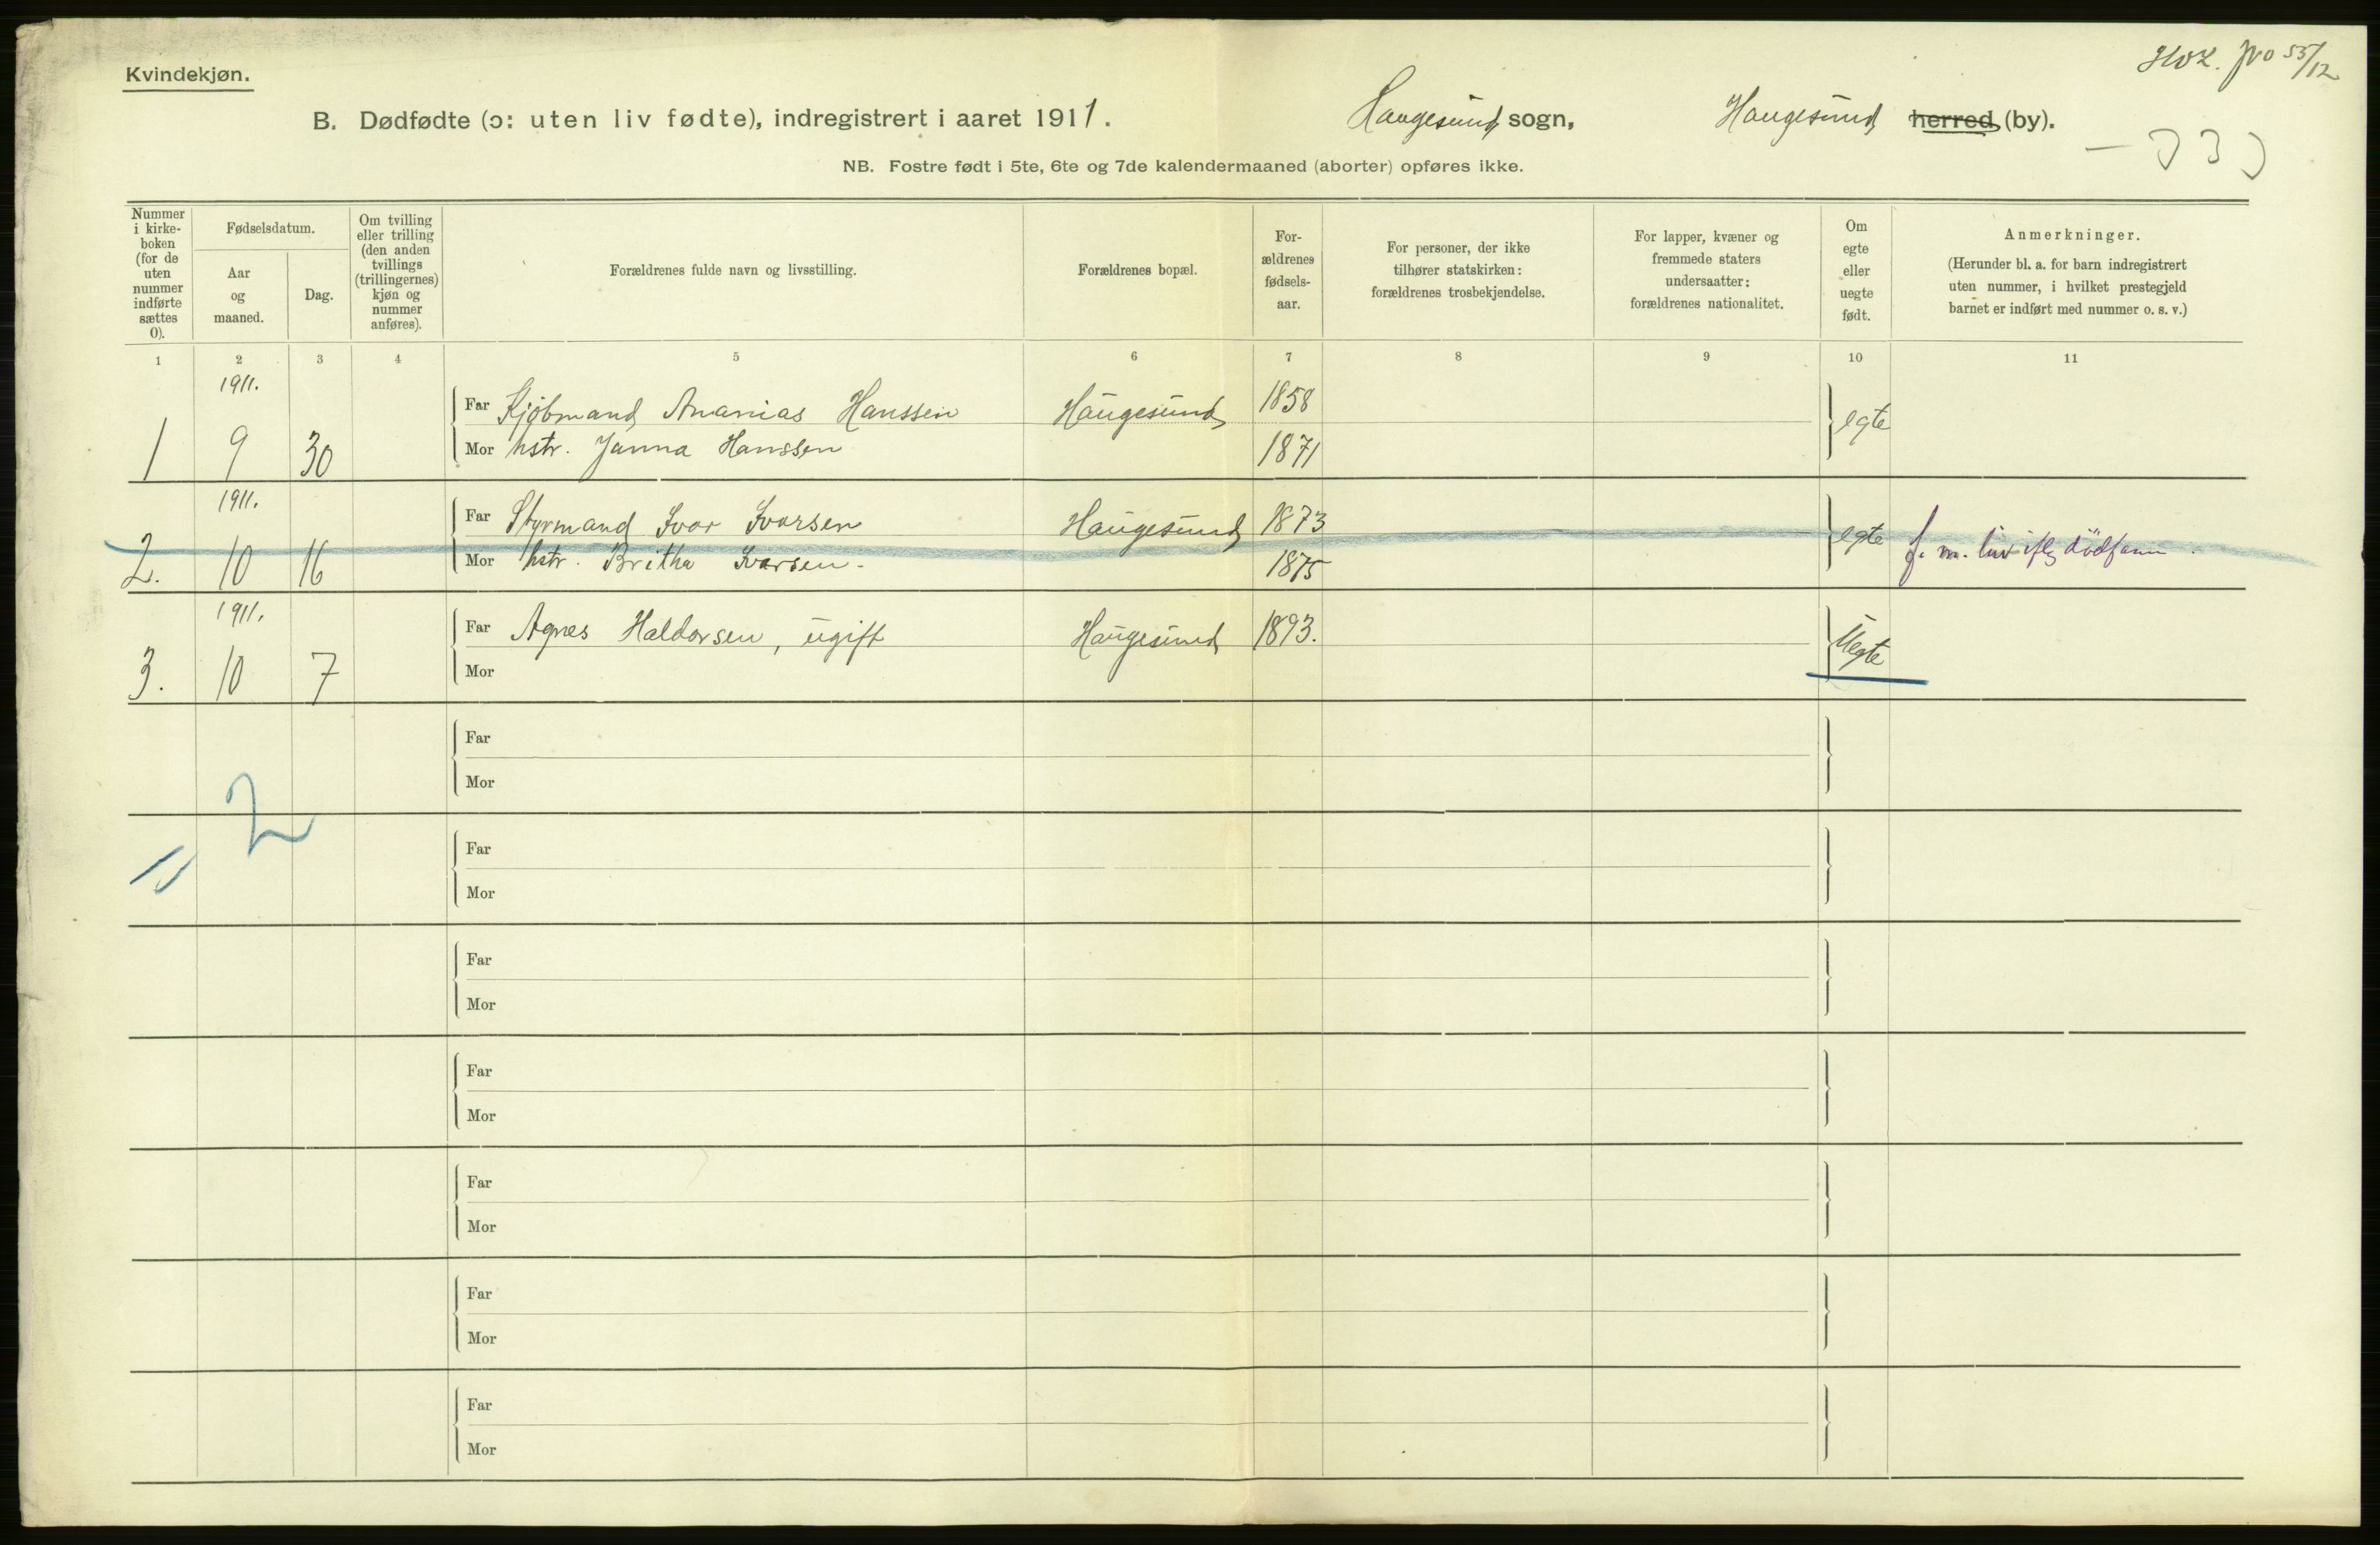 Kvindekjøn.
B. Dødfødte (ɔ: uten liv fødte), indregistrert i aaret 1911.
Haugesund sogn,
Haugesund herred (by).
NB. Fostre født i 5te, 6te og 7de kalendermaaned (aborter) opføres ikke.
Nummer
i kirke-
boken
(for de
uten
nummer
indførte
sættes
0).
Fødselsdatum.
Aar
og
maaned.
Dag.
Om tvilling
eller trilling
(den anden
tvillings
(trillingernes)
kjøn og
nummer
anføres).
Forældrenes fulde navn og livsstilling.
Forældrenes bopæl.
For-
ældrenes
fødsels-
aar.
For personer, der ikke
tilhører statskirken:
forældrenes trosbekjendelse.
For lapper, kvæner og
fremmede staters
undersaatter:
forældrenes nationalitet.
Om
egte
eller
uegte
født.
Anmerkninger.
(Herunder bl. a. for barn indregistrert
uten nummer, i hvilket prestegjeld
barnet er indført med nummer o. s. v.)
1 2 3 4 5 6 7 8 9 10 11
1911.
Far Kjøbmand Ananias Hanssen Haugesund 1858 egte
1 9 30 Mor hstr. Janna Hanssen 1871
1911.
Far Styrmand Ivar Ivarsen Haugesund 1873 egte f. m. liv iflg dödsanm.
2. 10 16 Mor hstr. Britha Ivarsen. 1875
1911.
Far Agnes Haldorsen, ugift Haugesund 1893. Uegte
3. 10 7 Mor
Far
Mor
2
Far
Mor
Far
Mor
Far
Mor
Far
Mor
Far
Mor
Far
Mor